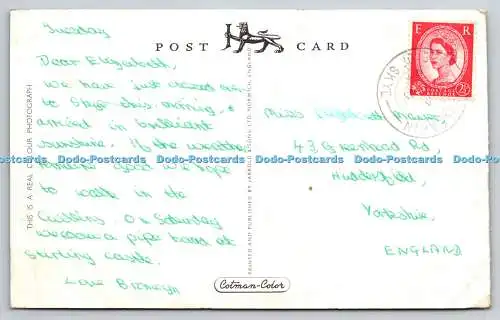 Tuesday
POST CARD
Dear Elizabeth,
We have just crossed over
to Skye this morning, &
arrived in brilliant
sunshine. If the weather
remains good we hope
to walk in the
Cuillins. On Saturday
we saw a pipe band at
Stirling castle.
Love
THIS IS A REAL COLOUR PHOTOGRAPH
PUBLISHED BY JARROLD & SONS LTD. NORWICH, ENGLAND
Cotman-Color
E R
2½D
SKYE
Miss Elizabeth
43, Greenhead Rd,
Huddersfield,
Yorkshire,
ENGLAND
Dodo-Postcards Dodo-Postcards Dodo-Postcards Dodo-Postcards